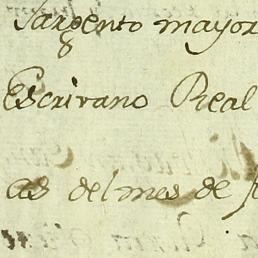 Sargento mayor
Escrivano Real
as del mes de